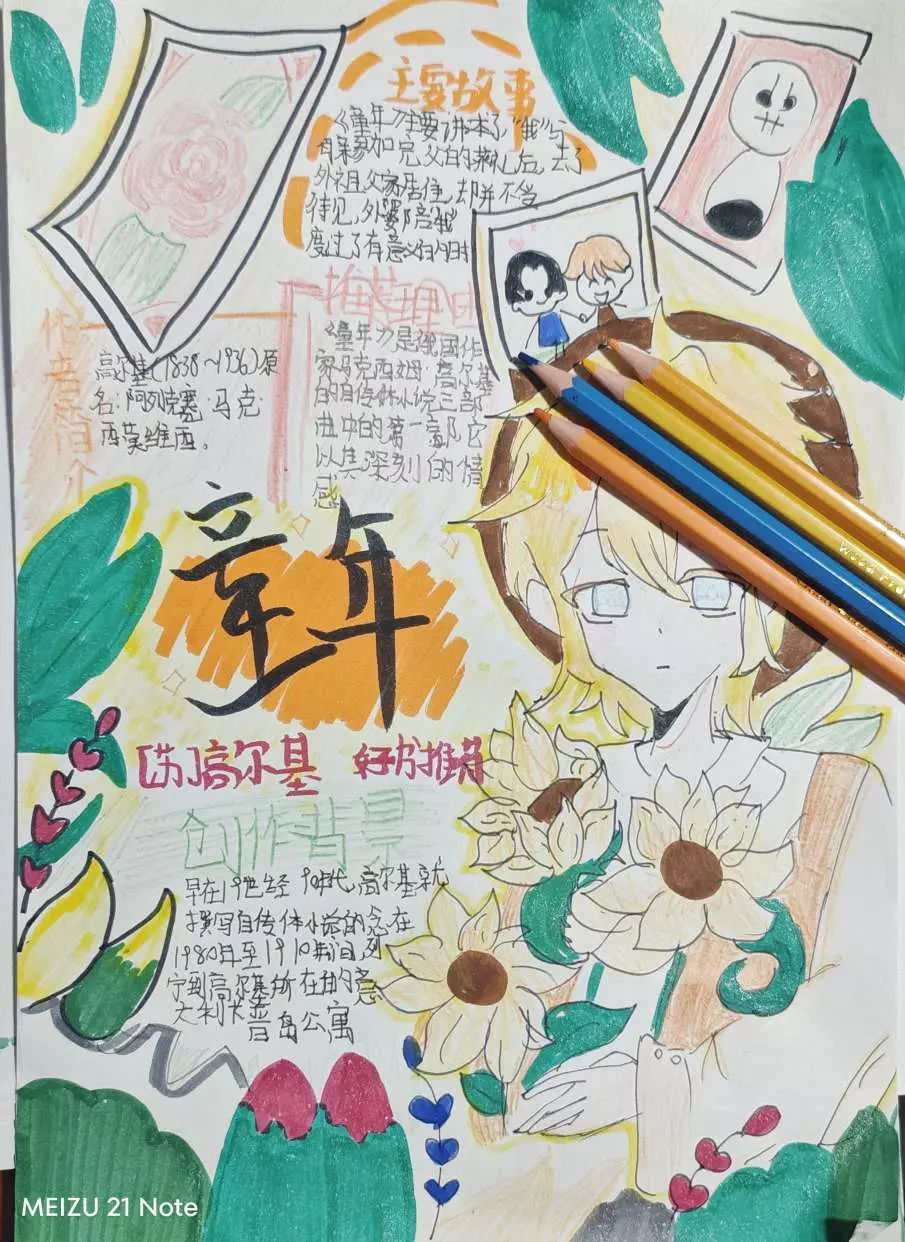 主要故事
《童年》主要讲本了"我"与
母亲参加完父的葬礼后,去了
外祖父家居住,却并不受
待见,外婆陪我
度过了有意义的时
推荐理由
《童年》是俄国作
家马克西姆·高尔基
的自传体小说三部
曲中的第一部,它
以其深刻的情
感
作者简介
高尔基(1838~1936)原
名:阿列克塞·马克·
西莫维西。
童年
[苏]高尔基 好书推荐
创作背景
早在19世经90年代,高尔基就
撰写自传体小说的念在
1980年至1910期间,列
宁到高尔基所在的意
大利 普岛公寓
MEIZU 21 Note